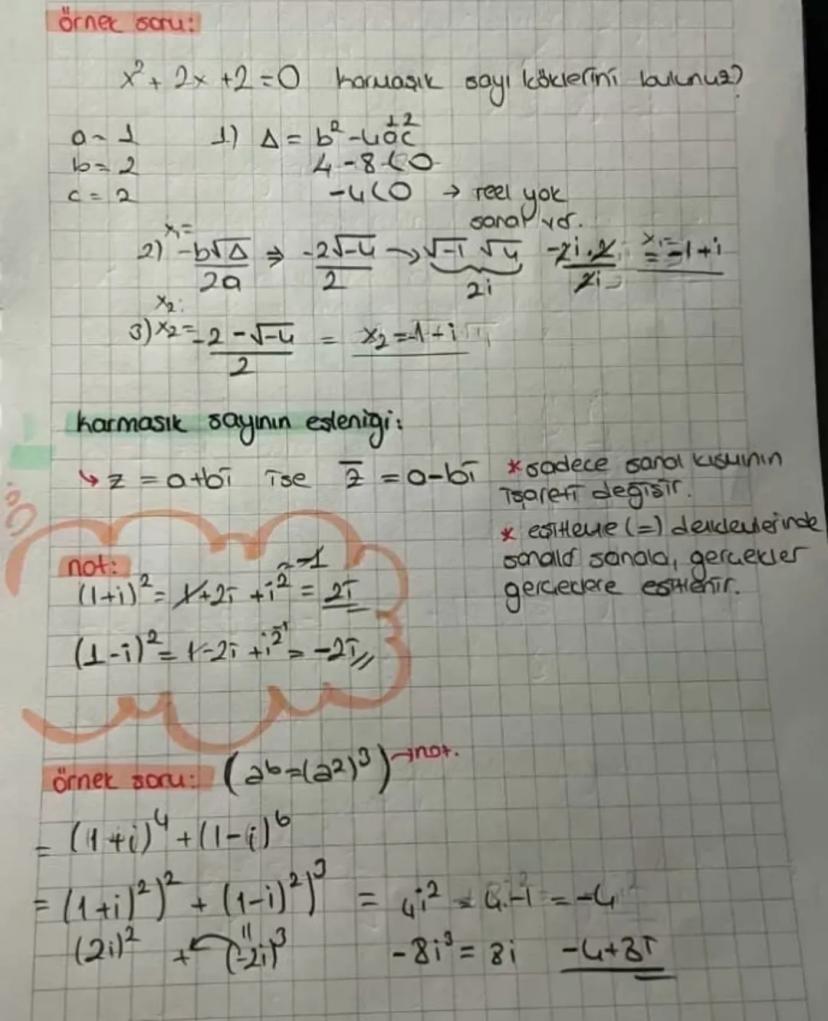 örnek soru:
x² + 2x + 2 = 0 karmaşık sayı köklerini bulunuz?
a = 1
1) Δ = b² - 4ac
b = 2
4 - 8 < 0
c = 2
-4 < 0 → reel yok
sanal var.
x₁=
2) -b√Δ / 2a ⇒ -2√-4 / 2 → √-1 √4 -2i.2 / 2i x₁= = -1+i
2i
x₂:
3) x₂ = -2 - √-4 / 2 = x₂ = -1+i
karmaşık sayının eşleniği:
↳ z = a+bi ise z̅ = a-bi
* sadece sanal kısmının
işareti değişir.
* eşitleme (=) denklemlerinde
sanallar sanala, gerçekler
gerçeklere eşitlenir.
not:
-1
(1+i)² = 1+2i + i² = 2i
(1-i)² = 1-2i + i² = -2i //
örnek soru: (a⁶=(a²)³) → not.
= (1+i)⁴ + (1-i)⁶
= (1+i)²)² + (1-i)²)³ = 4i² = 4.-1 = -4
(2i)² + (-2i)³ -8i³ = 8i -4+8i